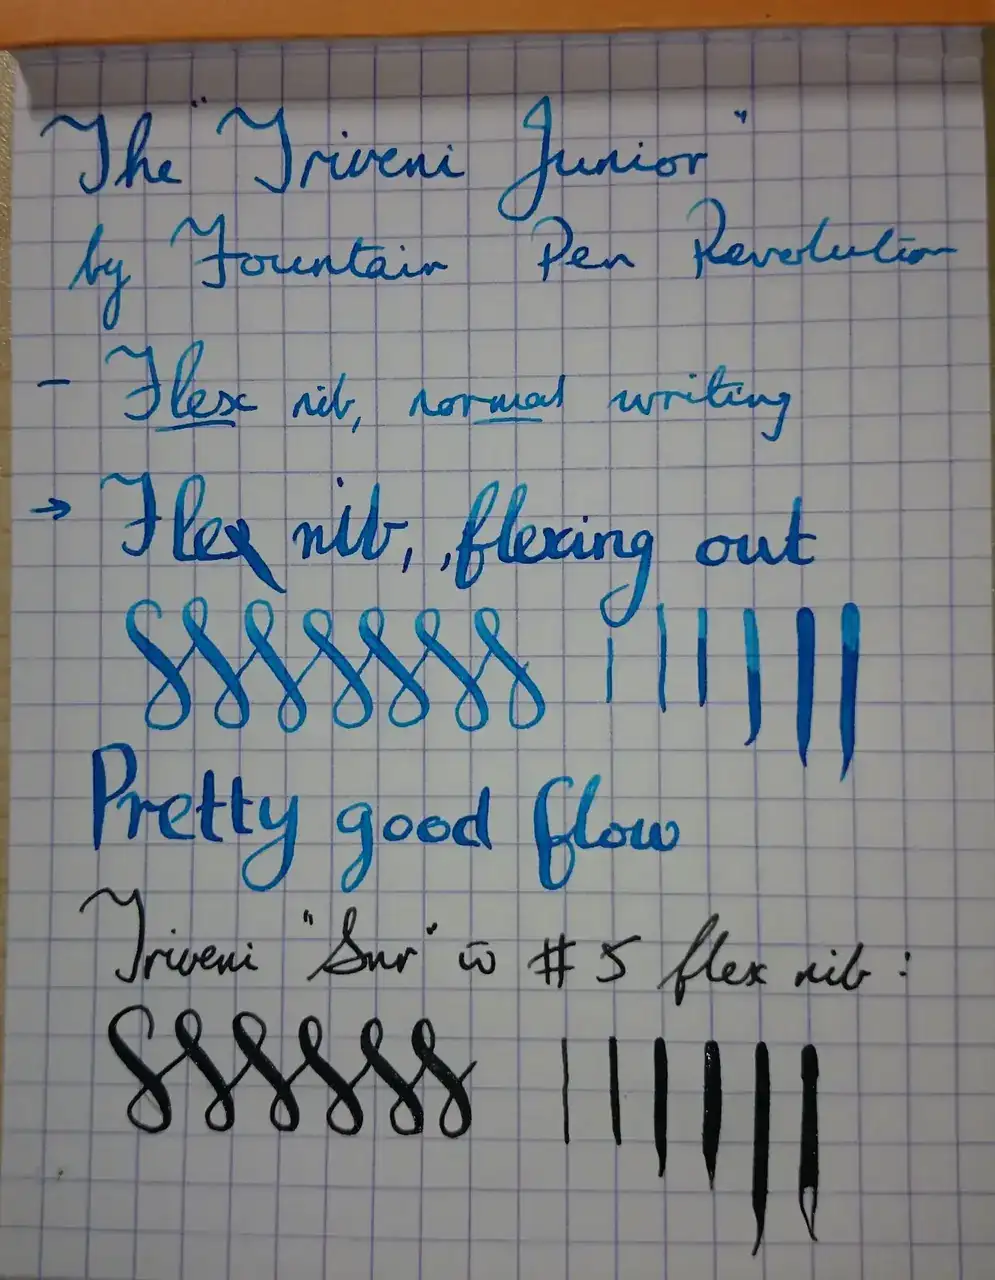 The "Triveni Junior"
by Fountain Pen Revolution
- Flex nib, normal writing
→ Flex nib, flexing out
Pretty good flow
Triveni "Snr" w̄ #5 flex nib: